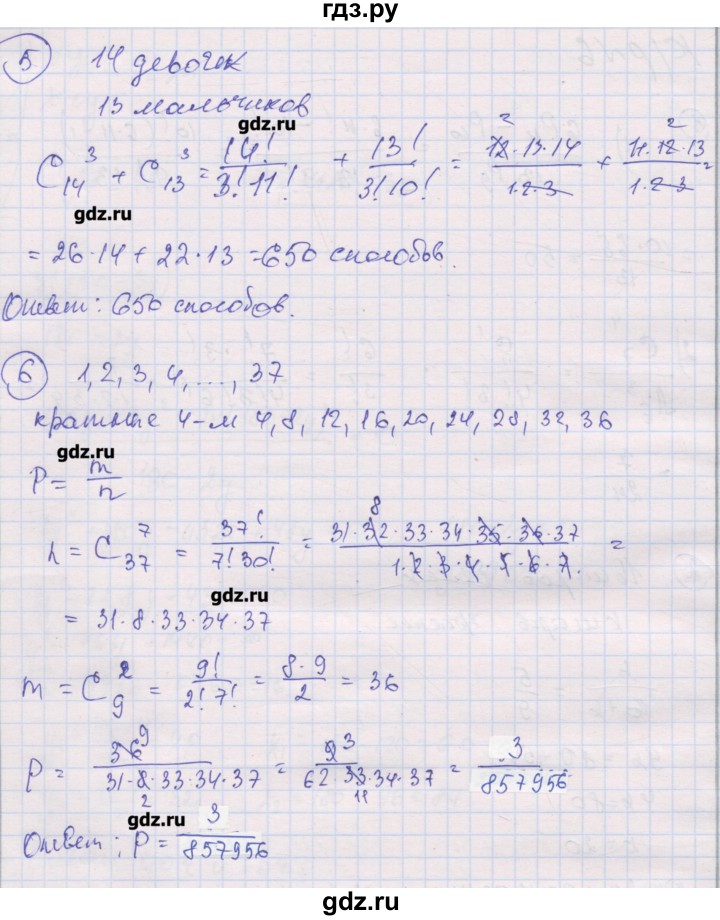 гдз.ру
5 14 девочек
13 мальчиков
C₁₄³ + C₁₃³ = 14!/(3!11!) + 13!/(3!10!) = (12·13·14)/(1·2·3) + (11·12·13)/(1·2·3) =
2 2
gdz.ru
gdz.ru
= 26·14 + 22·13 = 650 способов.
gdz.ru
Ответ: 650 способов.
6 1, 2, 3, 4, ..., 37
кратные 4-м 4, 8, 12, 16, 20, 24, 28, 32, 36
gdz.ru
P = m/n
n = C₃₇⁷ = 37!/(7!30!) = (31·32·33·34·35·36·37)/(1·2·3·4·5·6·7) =
8
gdz.ru
= 31·8·33·34·37
m = C₉² = 9!/(2!7!) = (8·9)/2 = 36
P = 36/(31·8·33·34·37) = 9/(62·33·34·37) = 3/857956
9 2 3 11
gdz.ru
Ответ: P = 3/857956
gdz.ru